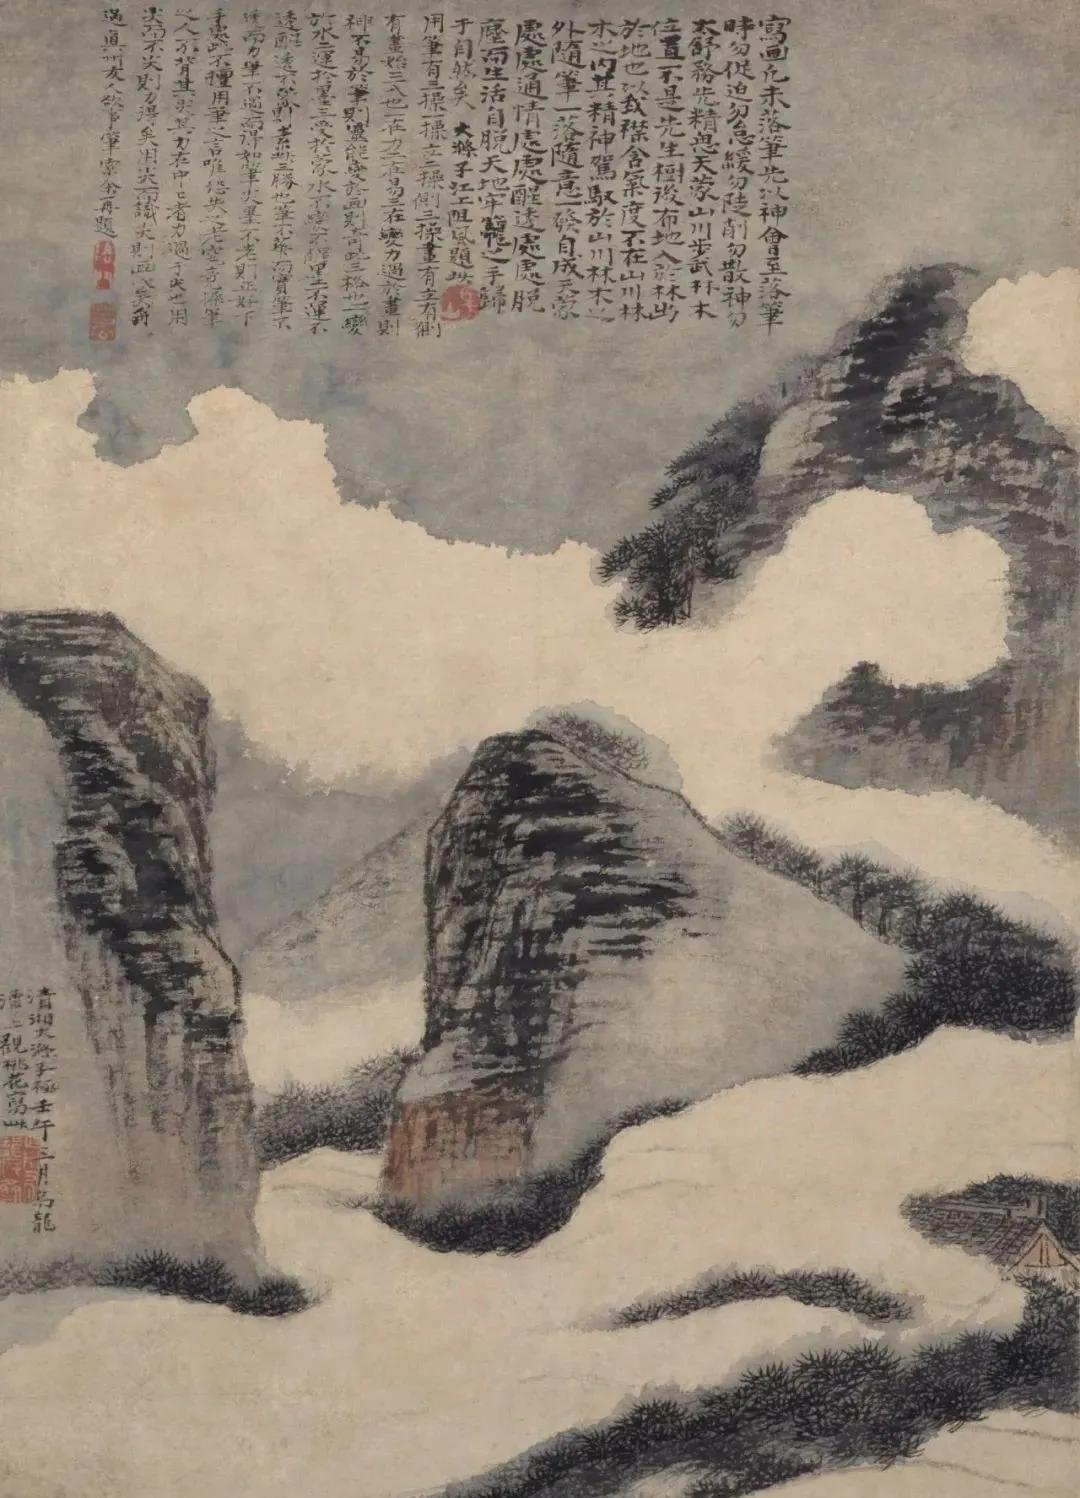 寫画凡未落筆先以神會至落筆
時勿促迫勿怠緩勿陡削勿散神勿
太舒務先精思天蒙山川步武林木
位置不是先生樹後布地入於林出
於地也以我襟含氣度不在山川林
木之内其精神駕馭於山川林木之
外隨筆一落隨意一發自成天蒙
處處通情處處醒透處處脱
塵而生活自脱天地牢籠之手歸
于自然矣 大滌子江上阻風題此
用筆有三操一操立二操側三操畫有立有側
有畫始三入也一在力二在易三在變力過於畫則
神不易於筆則靈能變於画則奇此三格也一變
於水二運於墨三受於蒙水不變不醒墨不運不
透醒透不蒙則素此三勝也筆不華而實筆不
透而力筆不過而得如筆尖墨不老則正好下
手處此不擅用筆之言唯恐失之老實竟深筆
之人不背其尖其力在中中者力過于尖也用
尖而不尖則力得矣用尖而識尖則画入矣
過真州友人欲事筆索余再題
清湘大滌子極壬午三月烏龍
潭上觀桃花寫此